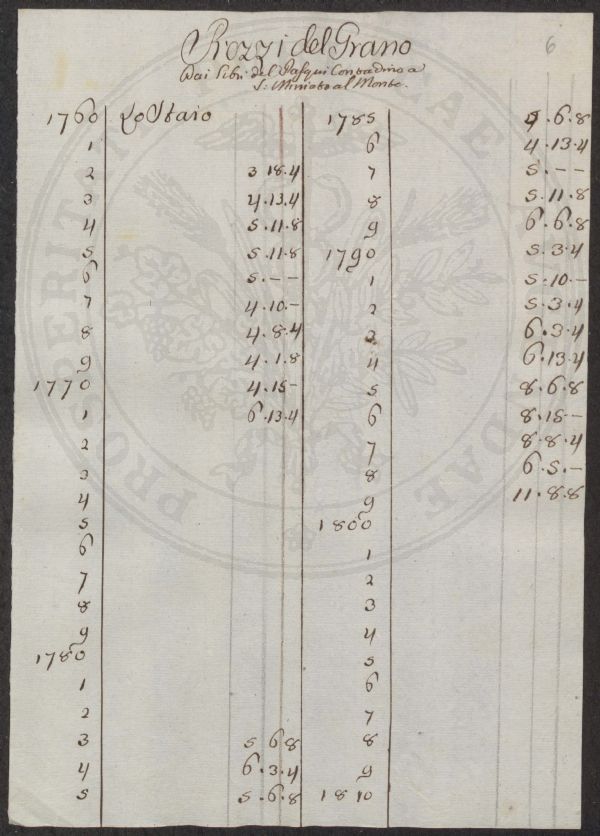 Prezzi del Grano
6
Dai Libri del Pasqui Contadino a
S: Miniato al Monte.
1760 Lo Staio
1
2 3 18.4
3 4.13.4
4 5.11.8
5 5.11.8
6 5.--
7 4.10.-
8 4.8.4
9 4.1.8
1770 4.15-
1 6.13.4
2
3
4
5
6
7
8
9
1780
1
2
3 5 6.8
4 6.3.4
5 5.6.8
1785 5.6.8
6 4.13.4
7 5.--
8 5.11.8
9 6.6.8
1790 5.3.4
1 5.10.-
2 5.3.4
3 6.3.4
4 6.13.4
5 8.6.8
6 8.15--
7 8.8.4
8 6.5.-
9 11.8.8
1800
1
2
3
4
5
6
7
8
9
1810
PROSPERITATI